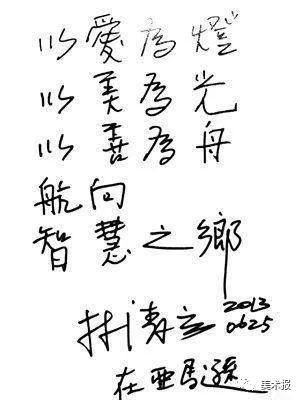 以愛為燈
以美為光
以善為舟
航向
智慧之鄉
林清玄
2013
0625
在亞馬遜
美术报